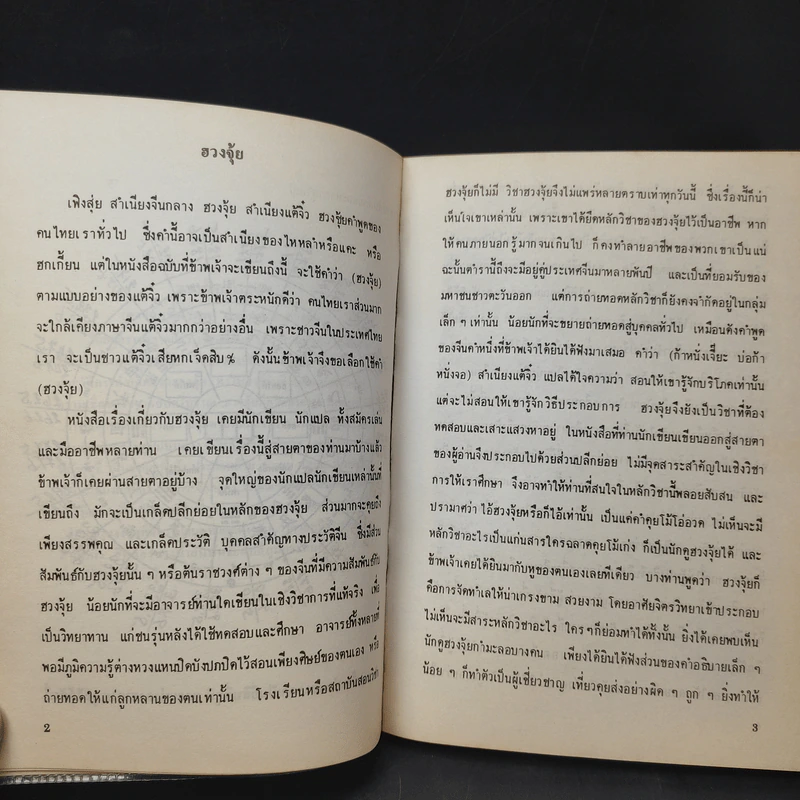 ฮวงจุ้ย
เฟิงสุ่ย สำเนียงจีนกลาง ฮวงจุ้ย สำเนียงแต้จิ๋ว ฮวงซุ้ยคำพูดของ
คนไทยเราทั่วไป ซึ่งคำนี้อาจเป็นสำเนียงของไหหลำหรือแคะ หรือ
ฮกเกี้ยน แต่ในหนังสือฉบับที่ข้าพเจ้าจะเขียนถึงนี้ จะใช้คำว่า (ฮวงจุ้ย)
ตามแบบอย่างของแต้จิ๋ว เพราะข้าพเจ้าตระหนักดีว่า คนไทยเราส่วนมาก
จะใกล้เคียงภาษาจีนแต้จิ๋วมากกว่าอย่างอื่น เพราะชาวจีนในประเทศไทย
เรา จะเป็นชาวแต้จิ๋วเสียหกเจ็ดสิบ% ดังนั้นข้าพเจ้าจึงขอเลือกใช้คำ
(ฮวงจุ้ย)
หนังสือเรื่องเกี่ยวกับฮวงจุ้ย เคยมีนักเขียน นักแปล ทั้งสมัครเล่น
และมืออาชีพหลายท่าน เคยเขียนเรื่องนี้สู่สายตาของท่านมาบ้างแล้ว
ข้าพเจ้าก็เคยผ่านสายตาอยู่บ้าง จุดใหญ่ของนักแปลนักเขียนเหล่านั้นที่
เขียนถึง มักจะเป็นเกล็ดปลีกย่อยในหลักของฮวงจุ้ย ส่วนมากจะคุยถึง
เพียงสรรพคุณ และเกล็ดประวัติ บุคคลสำคัญทางประวัติจีน ซึ่งมีส่วน
สัมพันธ์กับฮวงจุ้ยนั้น ๆ หรือต้นราชวงศ์ต่าง ๆ ของจีนที่มีความสัมพันธ์กับ
ฮวงจุ้ย น้อยนักที่จะมีอาจารย์ท่านใดเขียนในเชิงวิชาการที่แท้จริง เพื่อ
เป็นวิทยาทาน แก่ชนรุ่นหลังได้ใช้ทดสอบและศึกษา อาจารย์ทั้งหลายที่
พอมีภูมิความรู้ต่างหวงแหนปิดบังปกปิดไว้สอนเพียงศิษย์ของตนเอง หรือ
ถ่ายทอดให้แก่ลูกหลานของตนเท่านั้น โรงเรียนหรือสถาบันสอนวิชา
2
ฮวงจุ้ยก็ไม่มี วิชาฮวงจุ้ยจึงไม่แพร่หลายตราบเท่าทุกวันนี้ ซึ่งเรื่องนี้ก็น่า
เห็นใจเขาเหล่านั้น เพราะเขาได้ยึดหลักวิชาของฮวงจุ้ยไว้เป็นอาชีพ หาก
ให้คนภายนอกรู้มากจนเกินไป ก็คงทำลายอาชีพของพวกเขาเป็นแน่
ฉะนั้นตำรานี้ถึงจะมีอยู่คู่ประเทศจีนมาหลายพันปี และเป็นที่ยอมรับของ
มหาชนชาวตะวันออก แต่การถ่ายทอดหลักวิชาก็ยังคงจำกัดอยู่ในกลุ่ม
เล็ก ๆ เท่านั้น น้อยนักที่จะขยายถ่ายทอดสู่บุคคลทั่วไป เหมือนดังคำพูด
ของจีนคำหนึ่งที่ข้าพเจ้าได้ยินได้ฟังมาเสมอ คำว่า (ก้าหนั่งเจี๊ยะ บ่อก้า
หนั่งจอ) สำเนียงแต้จิ๋ว แปลได้ใจความว่า สอนให้เขารู้จักบริโภคเท่านั้น
แต่จะไม่สอนให้เขารู้จักวิธีประกอบการ ฮวงจุ้ยจึงยังเป็นวิชาที่ต้อง
ทดสอบและเสาะแสวงหาอยู่ ในหนังสือที่ท่านนักเขียนเขียนออกสู่สายตา
ของผู้อ่านจึงประกอบไปด้วยส่วนปลีกย่อย ไม่มีจุดสาระสำคัญในเชิงวิชา
การให้เราศึกษา จึงอาจทำให้ท่านที่สนใจในหลักวิชานี้พลอยสับสน และ
ปรามาศว่า ไอ้ฮวงจุ้ยหรือก็ไอ้เท่านั้น เป็นแค่คำคุยโม้โอ่อวด ไม่เห็นจะมี
หลักวิชาอะไรเป็นแก่นสารใครฉลาดคุยโม้เก่ง ก็เป็นนักดูฮวงจุ้ยได้ และ
ข้าพเจ้าเคยได้ยินมากับหูของตนเองเลยทีเดียว บางท่านพูดว่า ฮวงจุ้ยก็
คือการจัดทำเลให้น่าเกรงขาม สวยงาม โดยอาศัยจิตรวิทยาเข้าประกอบ
ไม่เห็นจะมีสาระหลักวิชาอะไร ใครๆก็ย่อมทำได้ทั้งนั้น ยิ่งได้เคยพบเห็น
นักดูฮวงจุ้ยกำมะลอบางคน เพียงได้ยินได้ฟังส่วนของคำอธิบายเล็ก ๆ
น้อย ๆ ก็ทำตัวเป็นผู้เชี่ยวชาญ เที่ยวคุยส่งอย่างผิด ๆ ถูก ๆ ยิ่งทำให้
3